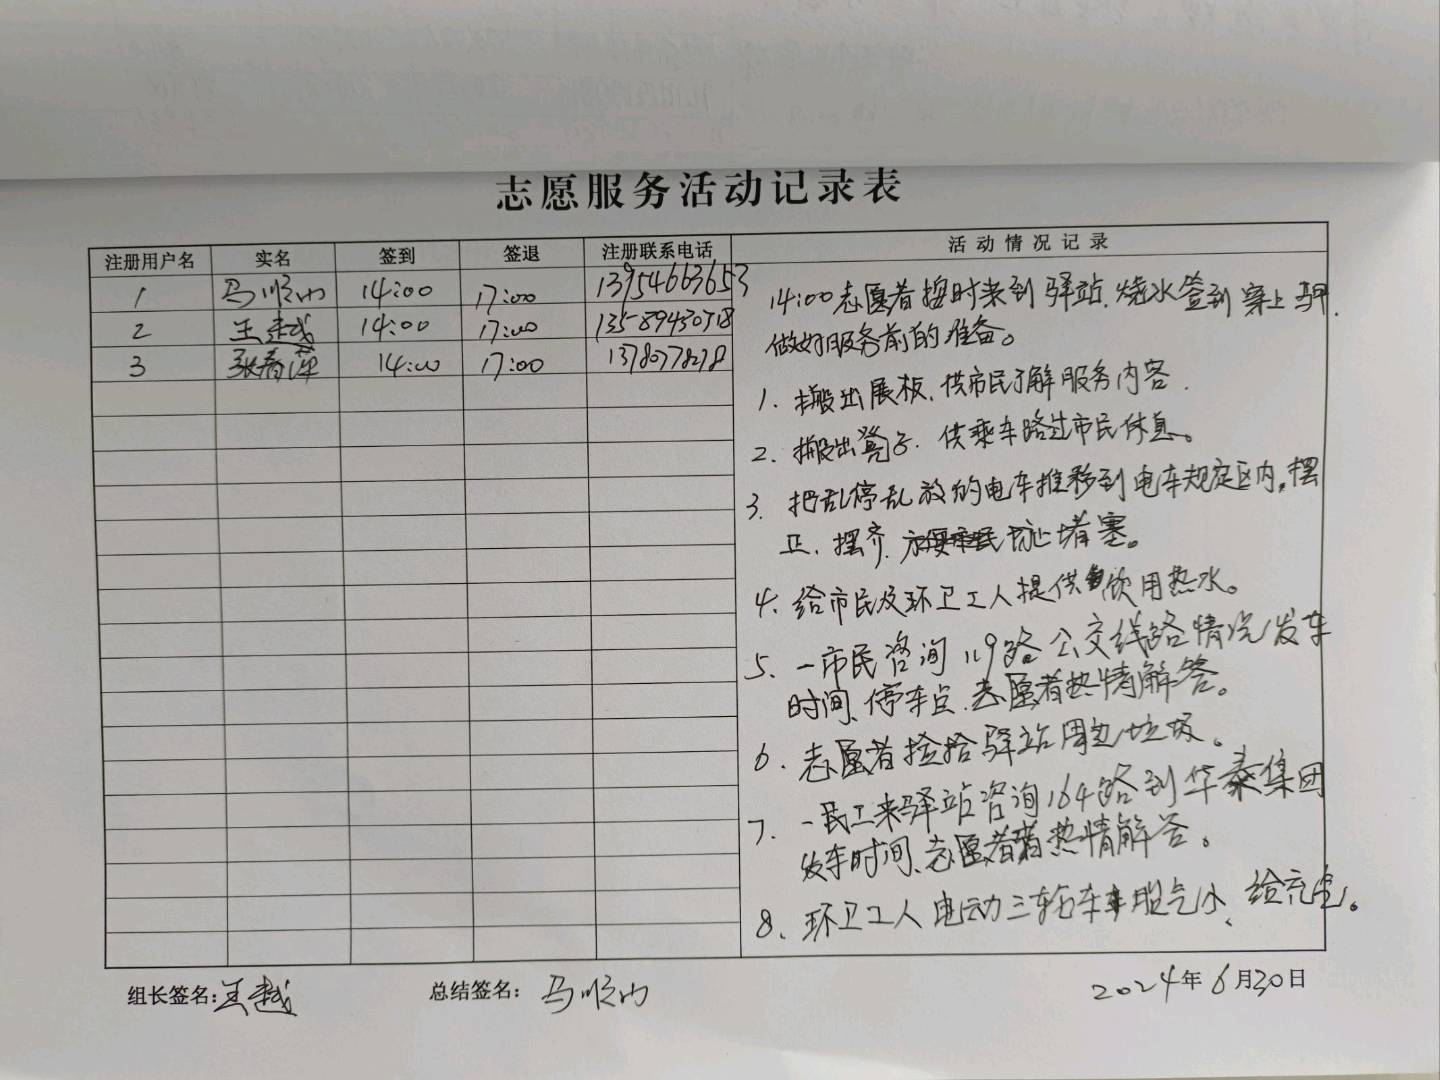 志愿服务活动记录表
注册用户名 实名 签到 签退 注册联系电话 活动情况记录
1 马顺山 14:00 17:00 13954663653
2 王越 14:00 17:00 13589430718
3 张春萍 14:00 17:00 1378077878
14:00志愿者按时来到驿站.烧水签到穿上马甲.
做好服务前的准备。
1. 搬出展板.供市民了解服务内容.
2. 搬出凳子.供乘车路过市民休息。
3. 把乱停乱放的电车推移到电车规定区内,摆
正、摆齐.防止堵塞。
4. 给市民及环卫工人提供饮用热水。
5. 一市民咨询119路公交线路情况发车
时间、停车点.志愿者热情解答。
6. 志愿者捡拾驿站周边垃圾。
7. 一民工来驿站咨询164路到华泰集团
发车时间、志愿者热情解答。
8、环卫工人电动三轮车胎气小、给充气。
组长签名:王越 总结签名:马顺山 2024年6月30日